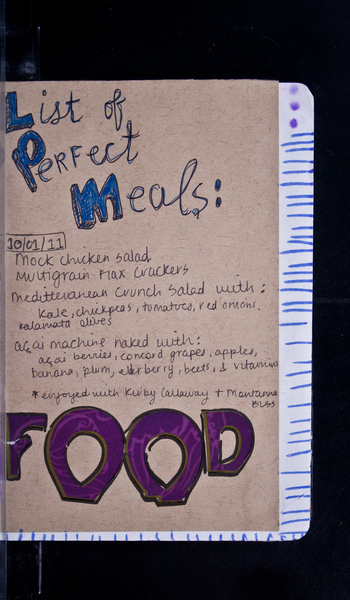 List of
Perfect
Meals:
10/01/11
Mock chicken salad
Multigrain Flax Crackers
Mediterranean Crunch Salad with:
kale, chickpeas, tomatoes, red onions,
kalamata olives
açai machine naked with:
açai berries, concord grapes, apples,
banana, plum, elderberry, beets, & vitamins
*enjoyed with Kirby Callaway + Montanna
FOOD